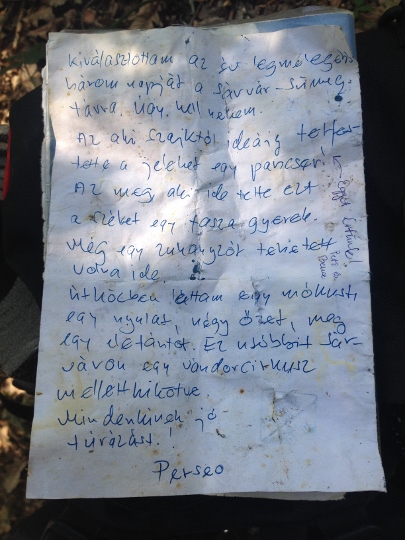 kiválasztottam az év legmelegebb
három napját a Sárvár-Sümeg
túrára. Úgy kell nekem.
Az aki Szajktól idáig telfes-
tette a jeleket egy pancser!
Az meg aki ide tette ezt
a széket egy fasza gyerek.
még egy zuhanyzót tehetett
volna ide.
Útközben láttam egy mókust,
egy nyulat, négy őzet, meg
egy elefántot. Ez utóbbit Sár-
váron egy vándorcirkusz
mellett kikötve.
Mindenkinek jó
túrázást!
Perseo
← Egyet értünk!